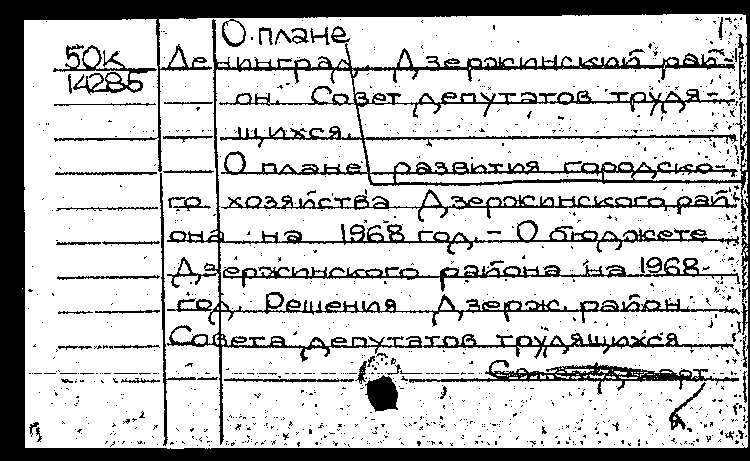 О плане
50к Ленинград. Дзержинский рай-
14285
он. Совет депутатов трудя-
щихся.
О плане развития городско-
го хозяйства Дзержинского рай-
она на 1968 год. - О бюджете
Дзержинского района на 1968
год. Решения Дзерж. район.
Совета депутатов трудящихся